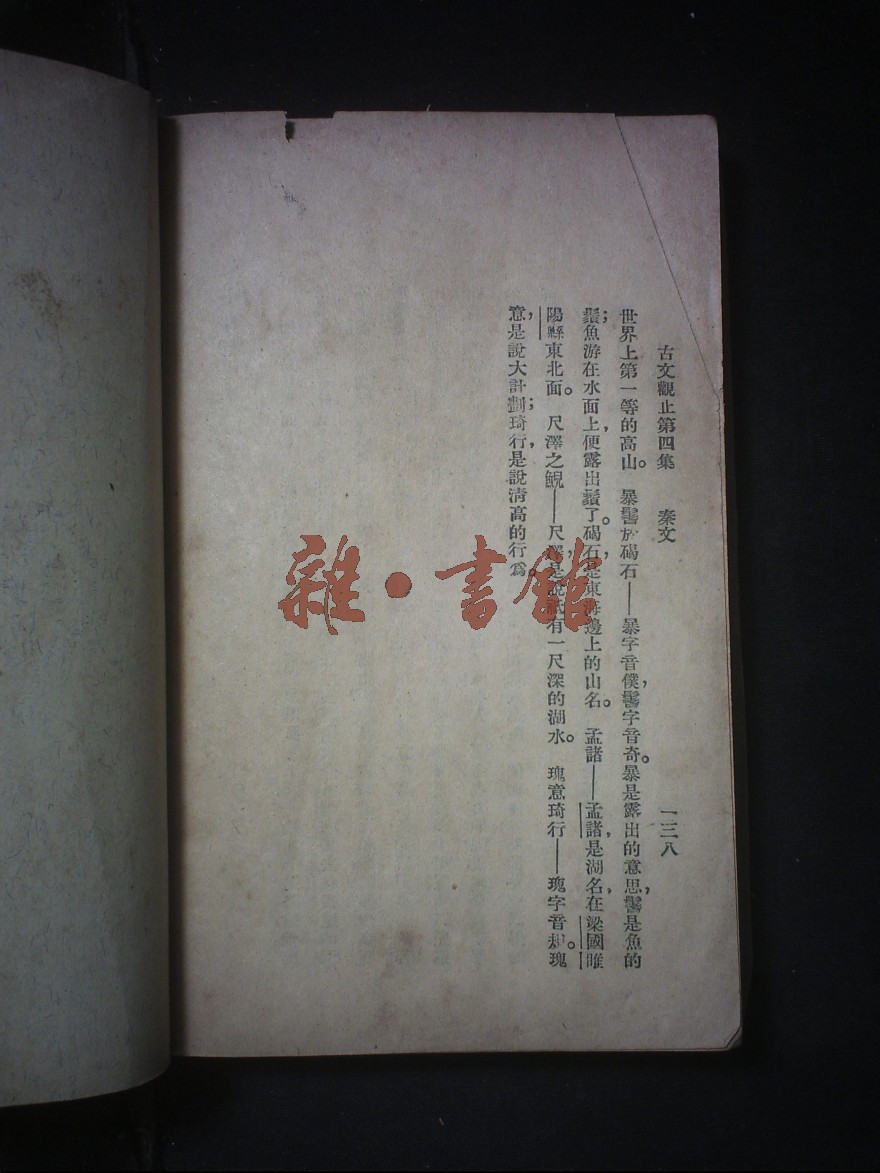 古文觀止第四集　秦文　一三八
世界上第一等的高山。　暴鬐於碣石——暴字音僕，鬐字音奇。暴是露出的意思，鬐是魚的
鬚；魚游在水面上，便露出鬚了。碣石，是東海邊上的山名。　孟諸——孟諸，是湖名，在梁國睢
陽縣東北面。　尺澤之鯢——尺澤，是說祇有一尺深的湖水。　瑰意琦行——瑰字音規。瑰
意，是說大計劃；琦行，是說清高的行爲。
雜·書館